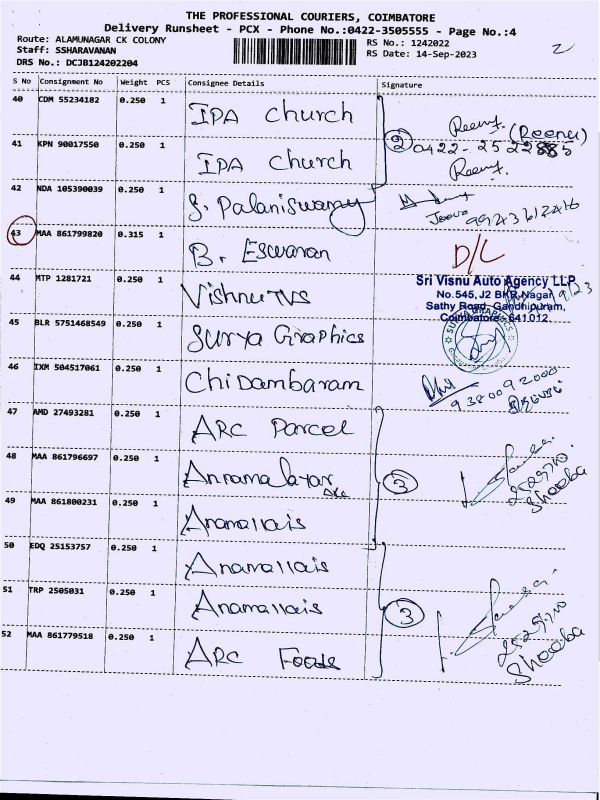 THE PROFESSIONAL COURIERS, COIMBATORE
Delivery Runsheet - PCX - Phone No.:0422-3505555 - Page No.:4
Route: ALAMUNAGAR CK COLONY RS No.: 1242022
Staff: SSHARAVANAN RS Date: 14-Sep-2023
DRS No.: DCJB124202204
2
S No Consignment No Weight PCS Consignee Details Signature
40 CDM 55234182 0.250 1 IPA Church
Reenu. (Reenu)
2 0422-2522885
41 KPN 90017550 0.250 1 IPA Church
Reenu.
42 NDA 105390039 0.250 1 S. Palaniswamy
Jeeva
43 MAA 861799820 0.315 1 B. Eswaran D/L
44 MTP 1281721 0.250 1 Vishnu TVS
Sri Visnu Auto Agency LLP
No.545, J2 BKR Nagar
Sathy Road, Gandhipuram,
Coimbatore - 641 012.
45 BLR 5751468549 0.250 1 Surya Graphics
SURYA GRAPHICS
46 IXM 504517061 0.250 1 Chidambaram
9380092000
47 AMD 27493281 0.250 1 ARC Parcel
48 MAA 861796697 0.250 1 Annamalayar 3
Shooba
49 MAA 861800231 0.250 1 Anamallais
50 EDQ 25153757 0.250 1 Anamallais
51 TRP 2505031 0.250 1 Anamallais 3
52 MAA 861779518 0.250 1 ARC Foods
Shooba